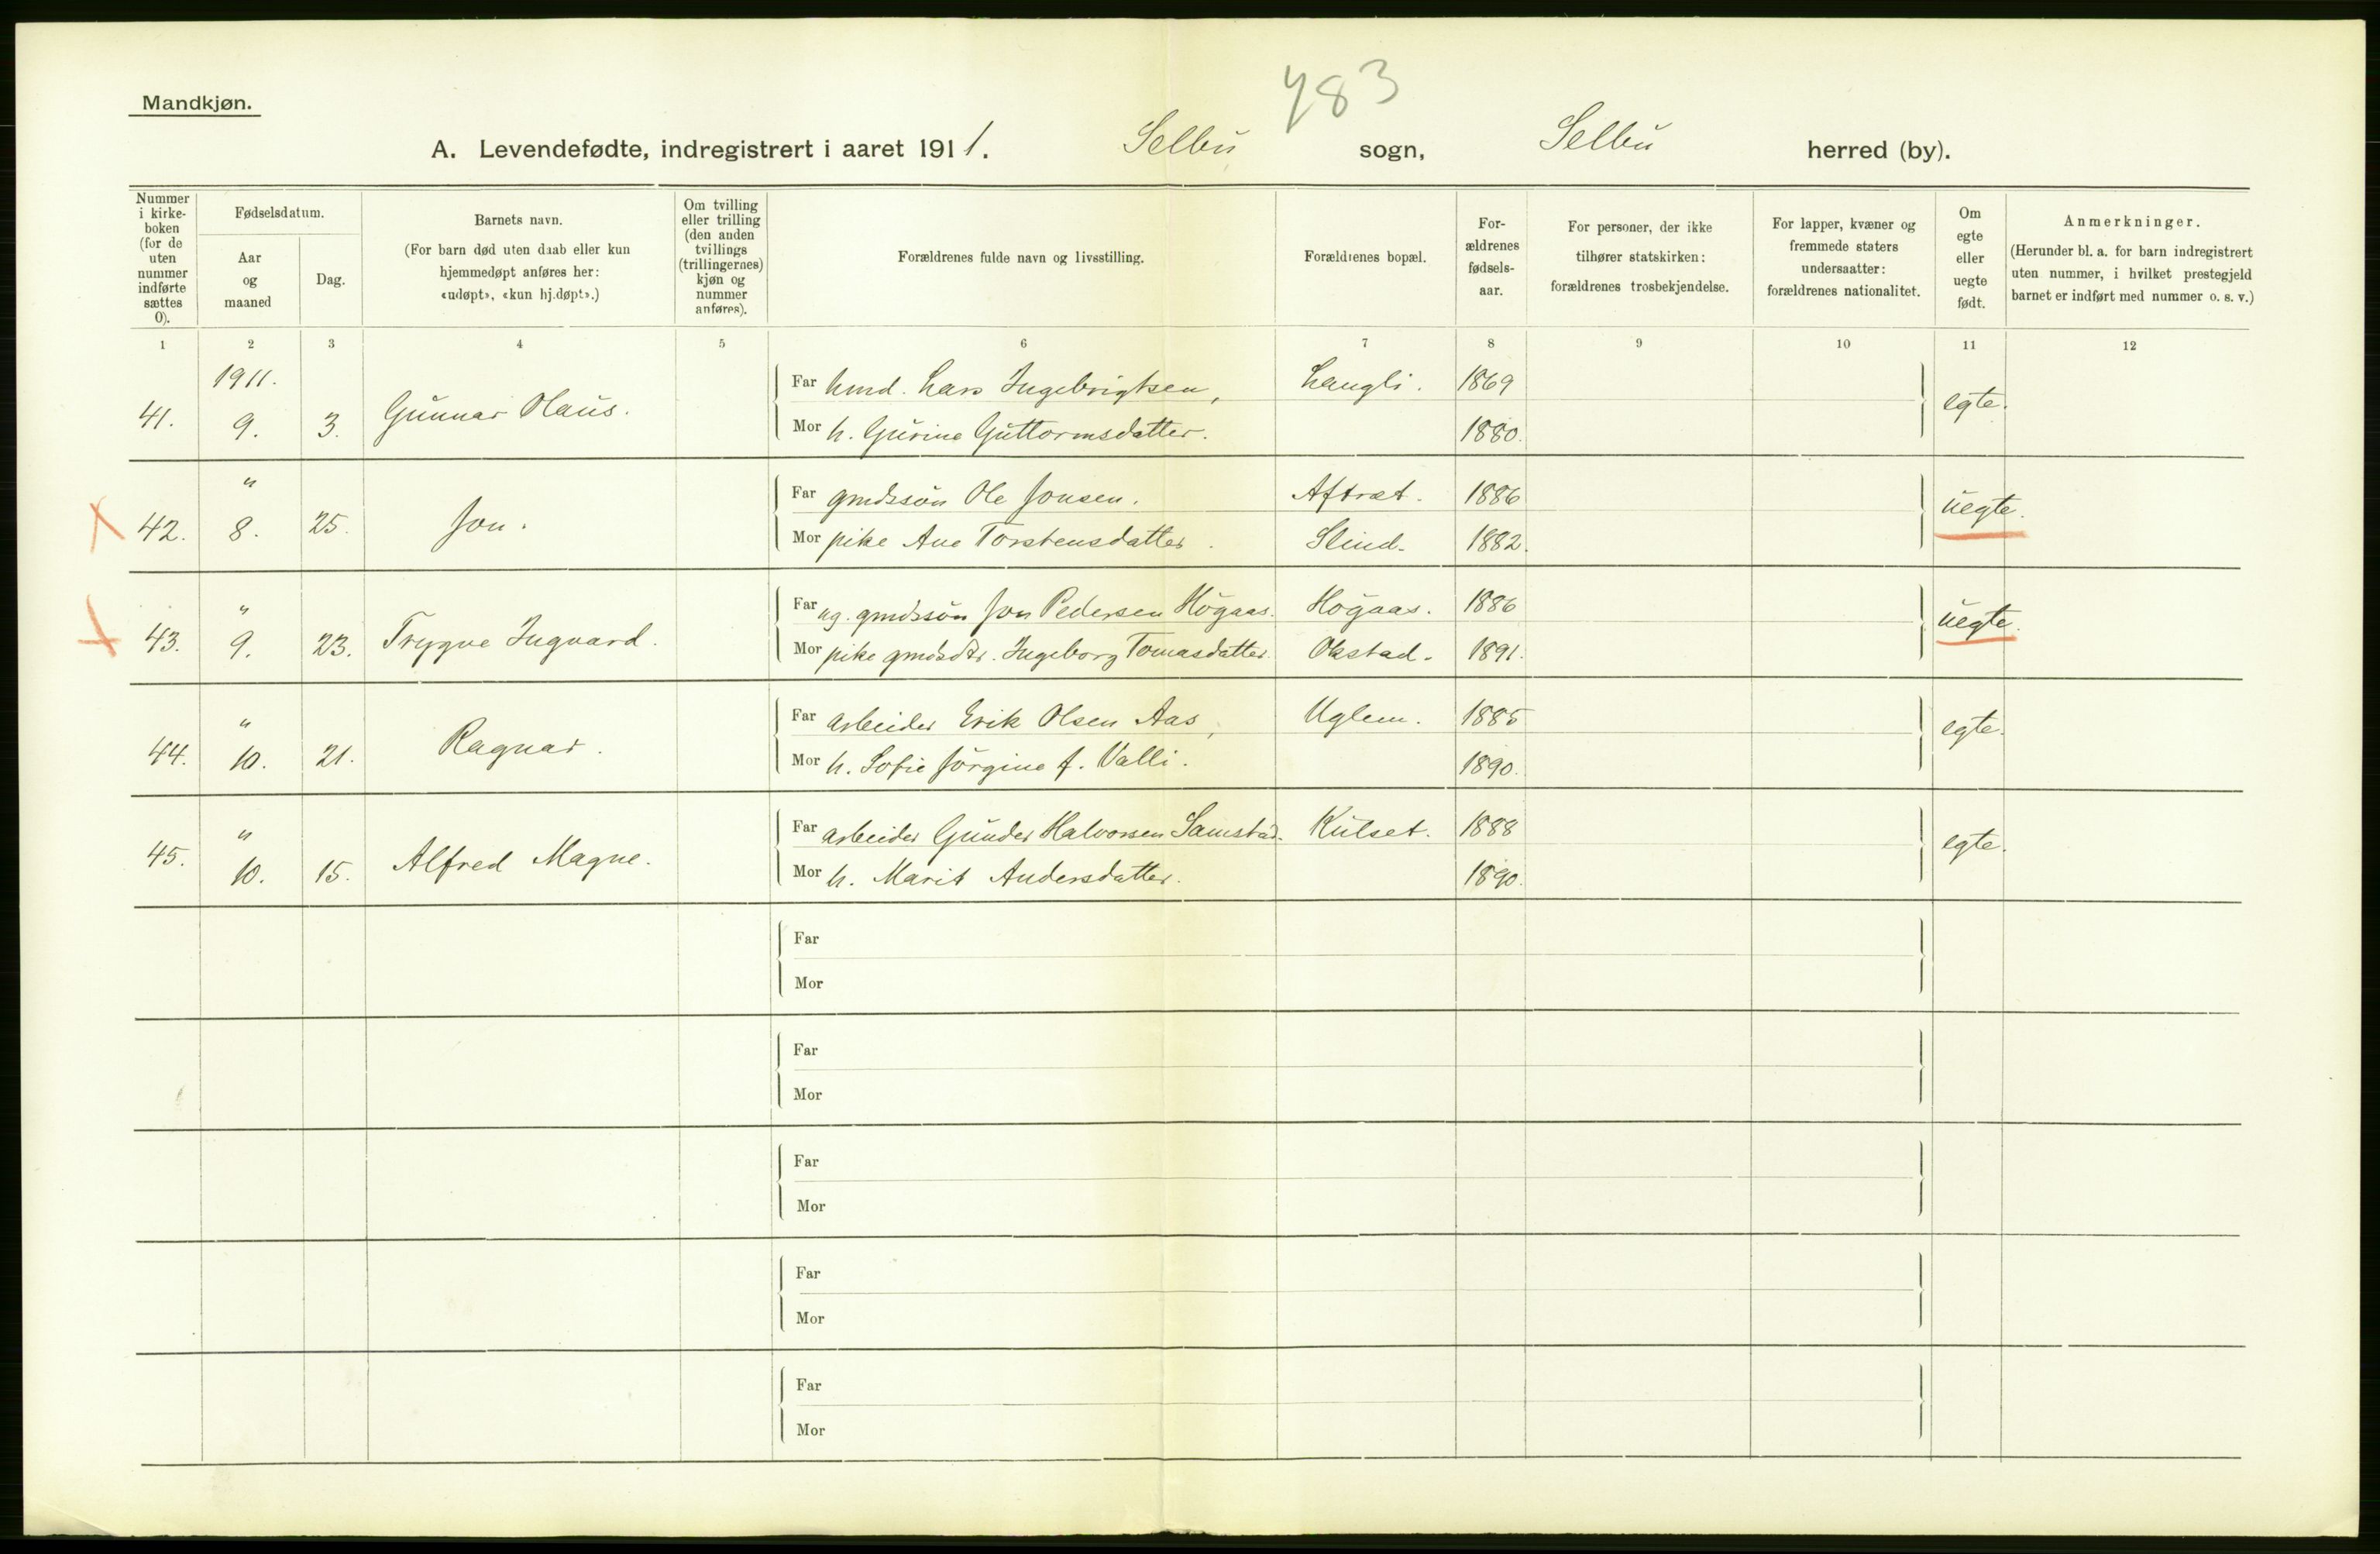 783
Mandkjøn.
A. Levendefødte, indregistrert i aaret 1911. Selbu sogn, Selbu herred (by).
Nummer i kirke- boken (for de uten nummer indførte sættes 0).
Fødselsdatum.
Aar og maaned
Dag.
Barnets navn.
(For barn død uten daab eller kun hjemmedøpt anføres her: «udøpt», «kun hj.døpt».)
Om tvilling eller trilling (den anden tvillings (trillingernes) kjøn og nummer anføres).
Forældrenes fulde navn og livsstilling.
Forældrenes bopæl.
For- ældrenes fødsels- aar.
For personer, der ikke tilhører statskirken: forældrenes trosbekjendelse.
For lapper, kvæner og fremmede staters undersaatter: forældrenes nationalitet.
Om egte eller uegte født.
Anmerkninger.
(Herunder bl. a. for barn indregistrert uten nummer, i hvilket prestegjeld barnet er indført med nummer o. s. v.)
1 2 3 4 5 6 7 8 9 10 11 12
1911.
41. 9. 3. Gunnar Olaus.
Far hmd. Lars Ingebrigtsen, Langli. 1869
Mor h. Gurine Guttormsdatter. 1880.
egte.
"
42. 8. 25. Jon.
Far gmdssøn Ole Jonsen. Aftret. 1886
Mor pike Ane Torstensdatter. Slind. 1882.
uegte.
"
43. 9. 23. Trygve Ingvard.
Far ug. gmdssøn Jon Pedersen Högaas. Högaas. 1886
Mor pike gmdsdtr. Ingeborg Tomasdatter. Okstad. 1891.
uegte.
"
44. 10. 21. Ragnar.
Far arbeider Erik Olsen Aas, Uglem. 1885
Mor h. Sofie Jörgine f. Valli. 1890.
egte.
"
45. 10. 15. Alfred Magne.
Far arbeider Gunder Halvorsen Samstad. Kulset. 1888
Mor h. Marit Andersdatter. 1890.
egte.
Far
Mor
Far
Mor
Far
Mor
Far
Mor
Far
Mor